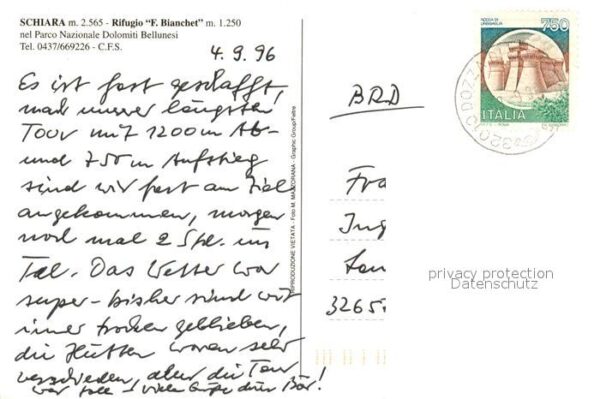 SCHIARA m. 2.565 - Rifugio "F. Bianchet" m. 1.250
nel Parco Nazionale Dolomiti Bellunesi
Tel. 0437/669226 - C.F.S.
4.9.96
Es ist fast geschafft,
nach unserer längsten
Tour mit 1200m Ab-
und 750m Aufstieg
sind wir fast am Ziel
angekommen, morgen
noch mal 2 Std. ins
Tal. Das Wetter war
super - bisher sind wir
immer trocken geblieben,
die Hütten waren sehr
verschieden, aber die Tour
war toll! Viele Grüße Dein Bär!
RIPRODUZIONE VIETATA - Foto M. MAZZORANA - Graphic Group/Feltre
750
ROCCA DI
URBISAGLIA
ITALIA
32010
BRD
Fra
Ing
3265
privacy protection
Datenschutz